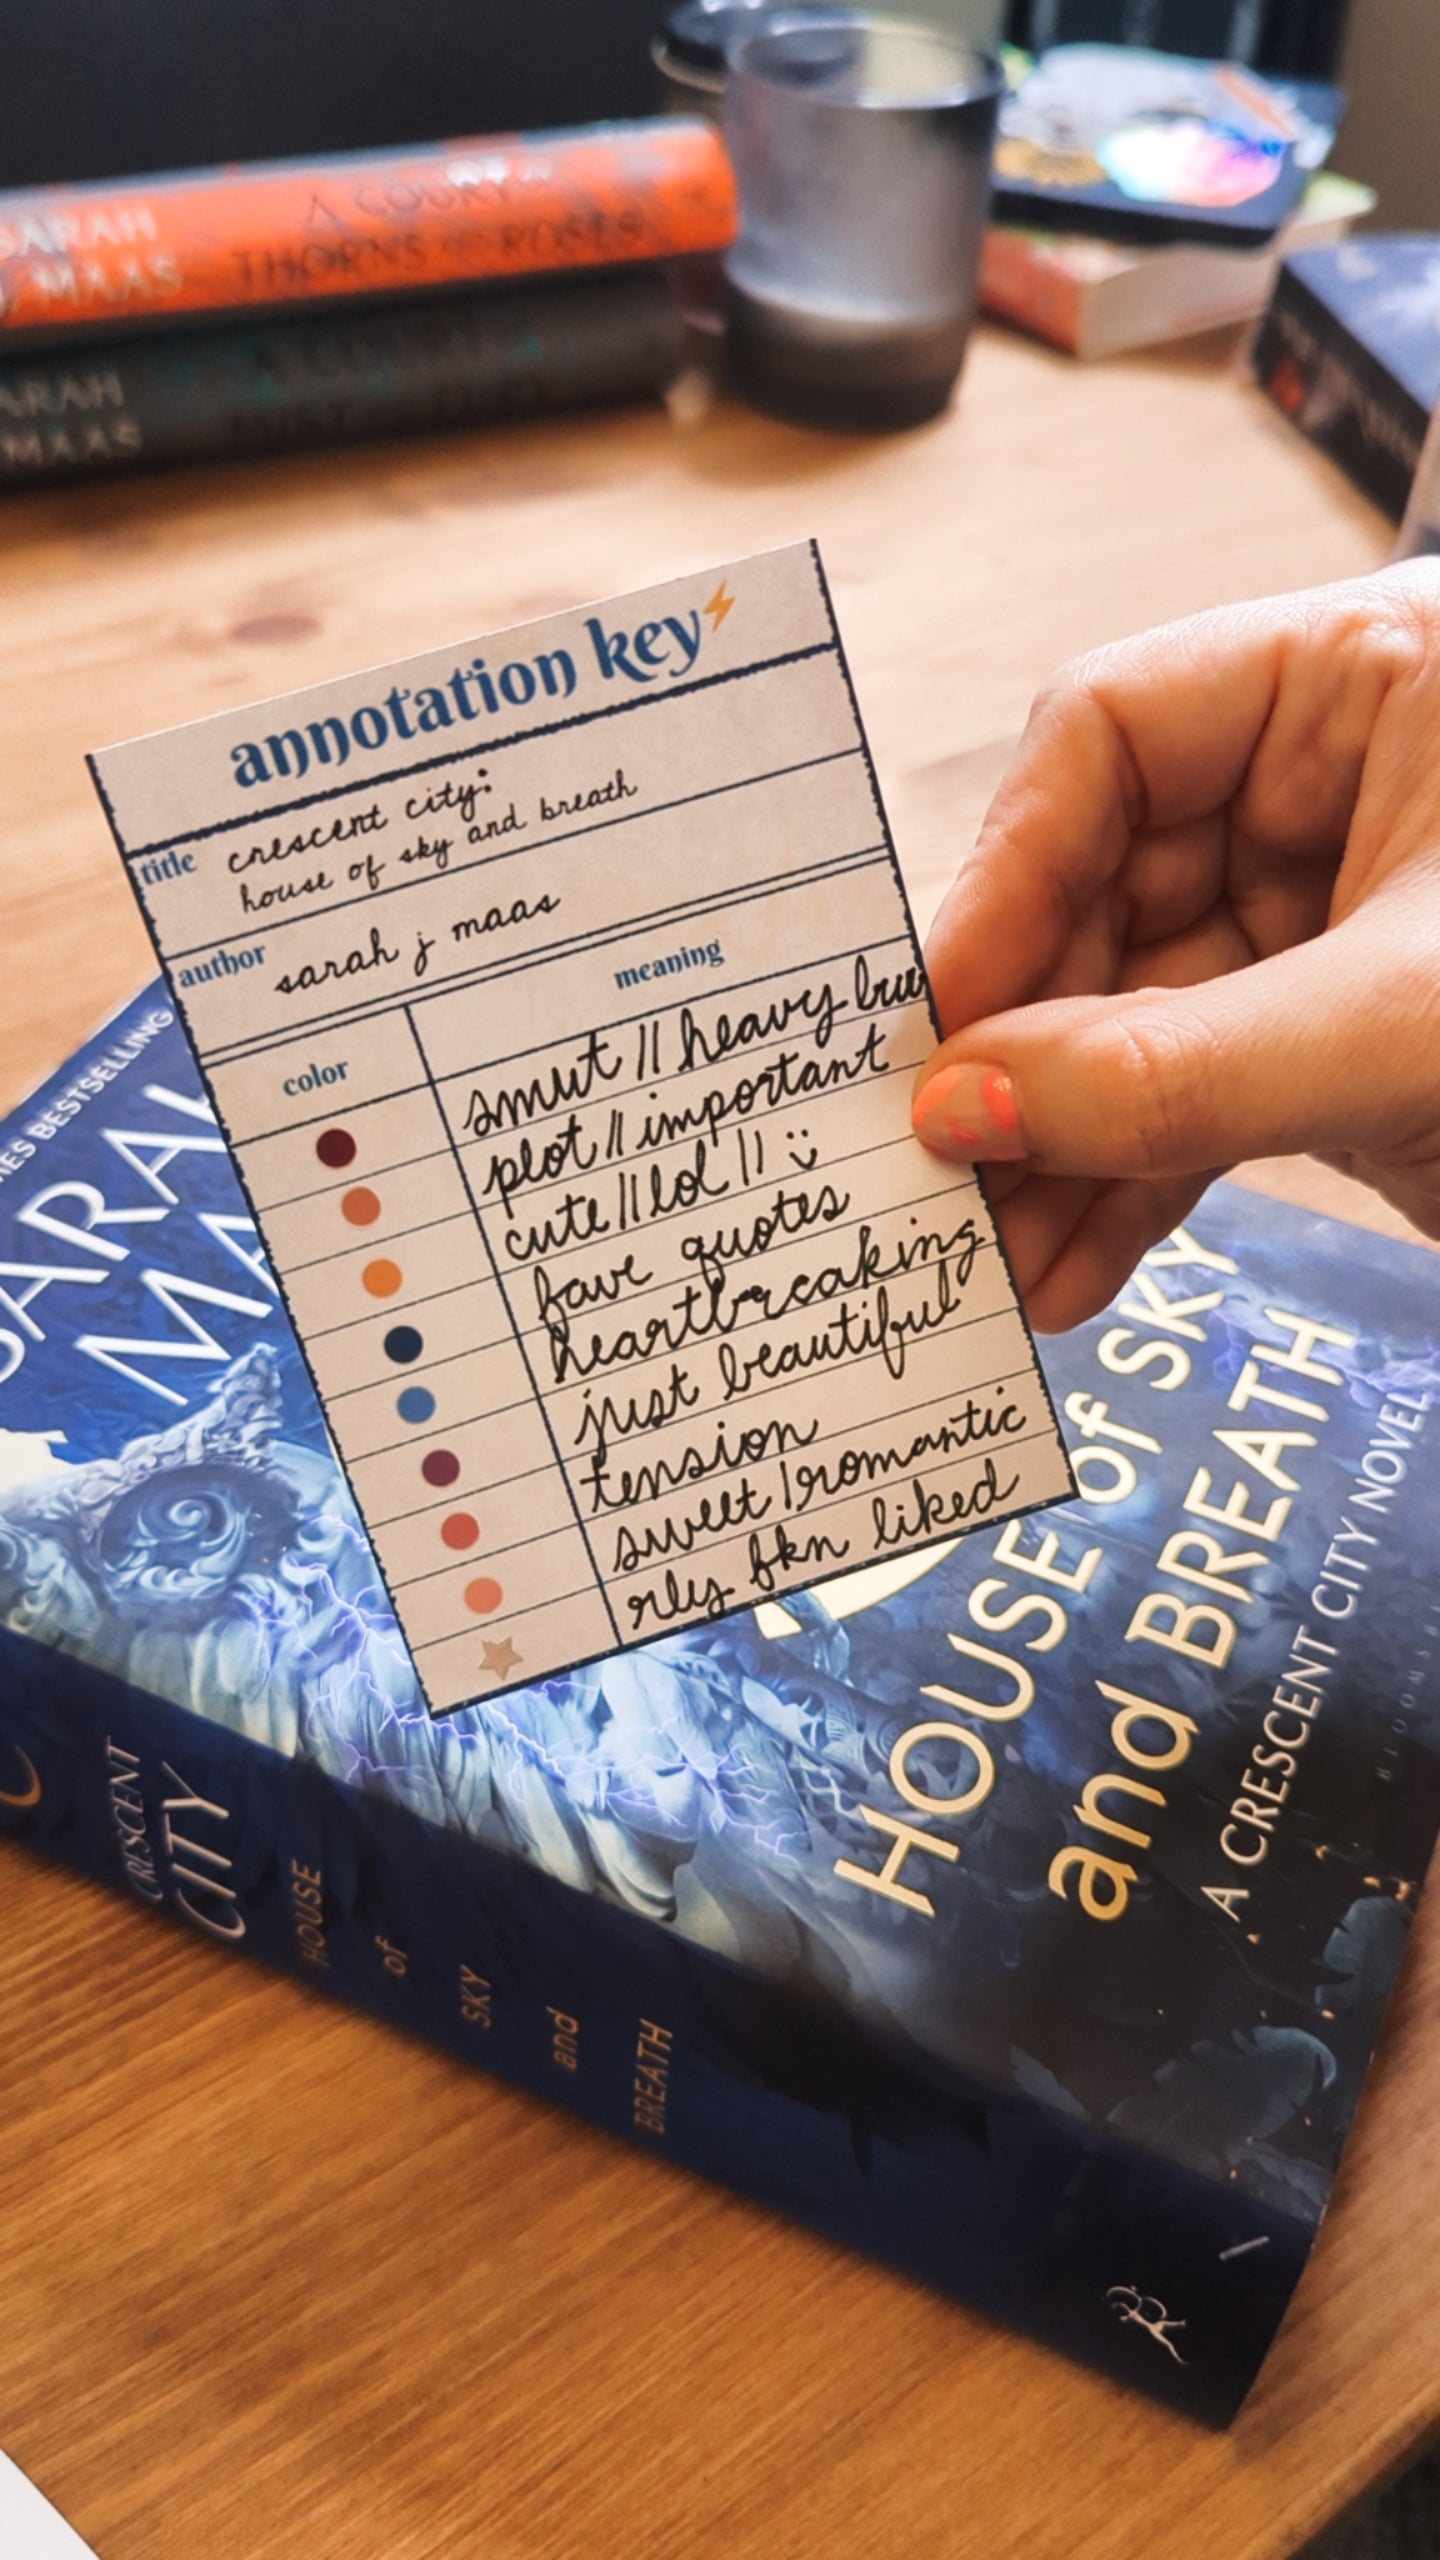 SARAH
J. MAAS
A COURT OF
THORNS and ROSES
SARAH
MAAS
annotation key
title crescent city:
house of sky and breath
author sarah j maas
color meaning
smut // heavy
plot // important
cute // lol // :)
fave quotes
heartbreaking
just beautiful
tension
sweet / romantic
rly fkn liked
BESTSELLING
SARAH
HOUSE of SKY
and BREATH
A CRESCENT CITY NOVEL
CRESCENT
CITY
HOUSE
of
SKY
and
BREATH